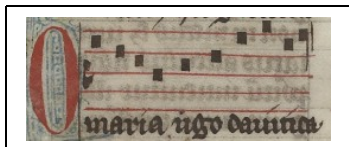 O
maria uirgo dauitica